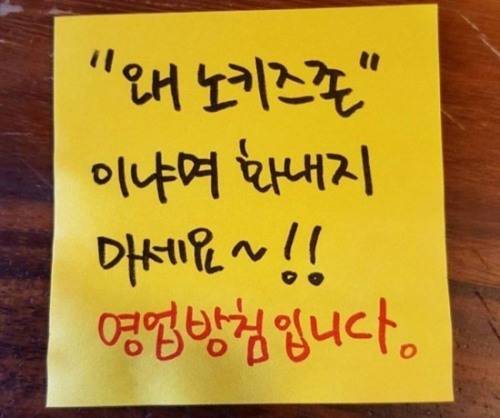 "왜 노키즈존"
이냐며 화내지
마세요~!!
영업방침입니다.